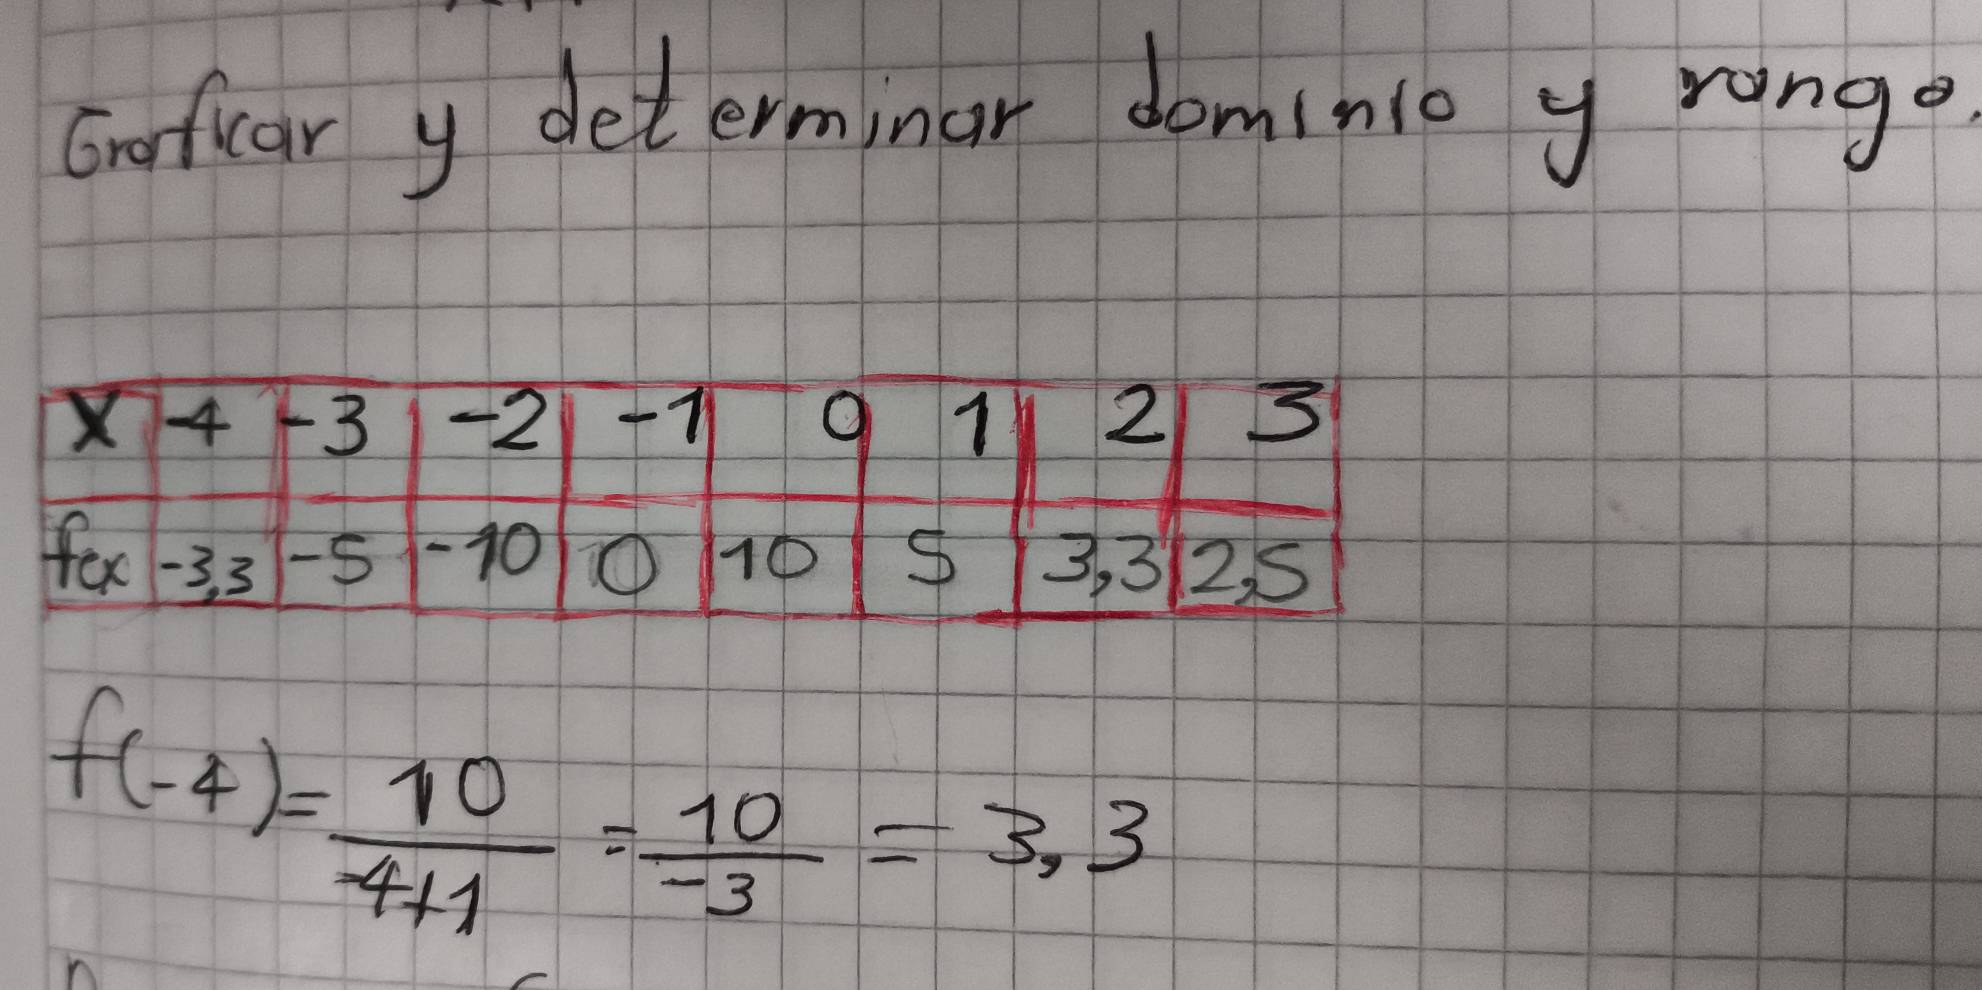 Graficar y determinar dominio y rango.
X -4 -3 -2 -1 0 1 2 3
fcx -3,3 -5 -10 0 10 5 3,3 2,5
f(-4)= 10/-4+1 = 10/-3 = 3,3